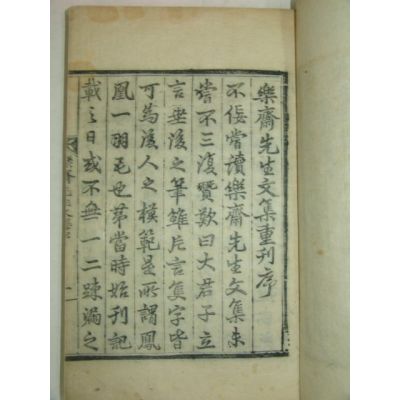 樂齋先生文集重刊序
不侫嘗讀樂齋先生文集未
嘗不三復贊歎曰大君子立
言垂後之筆雖片言隻字皆
可爲後人之模範是所謂鳳
凰一羽毛也第當時始刊記
載之日或不無一二踈漏之
樂齋先生文集序